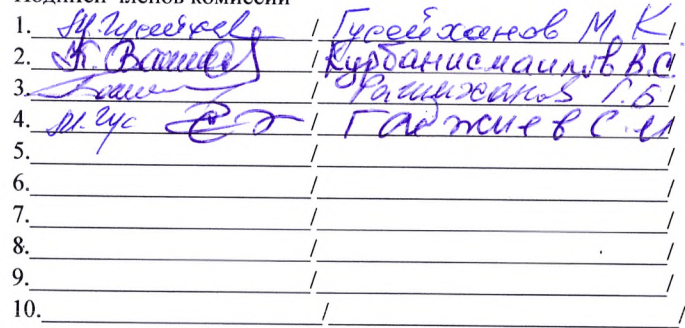 Подписи членов комиссии
1. / Гусейханов М. К /
2. / Курбанисмаилов В.С. /
3. / Рагимханов Г.Б /
4. / Гаджиев С.М /
5. / /
6. / /
7. / /
8. / /
9. / /
10. / /